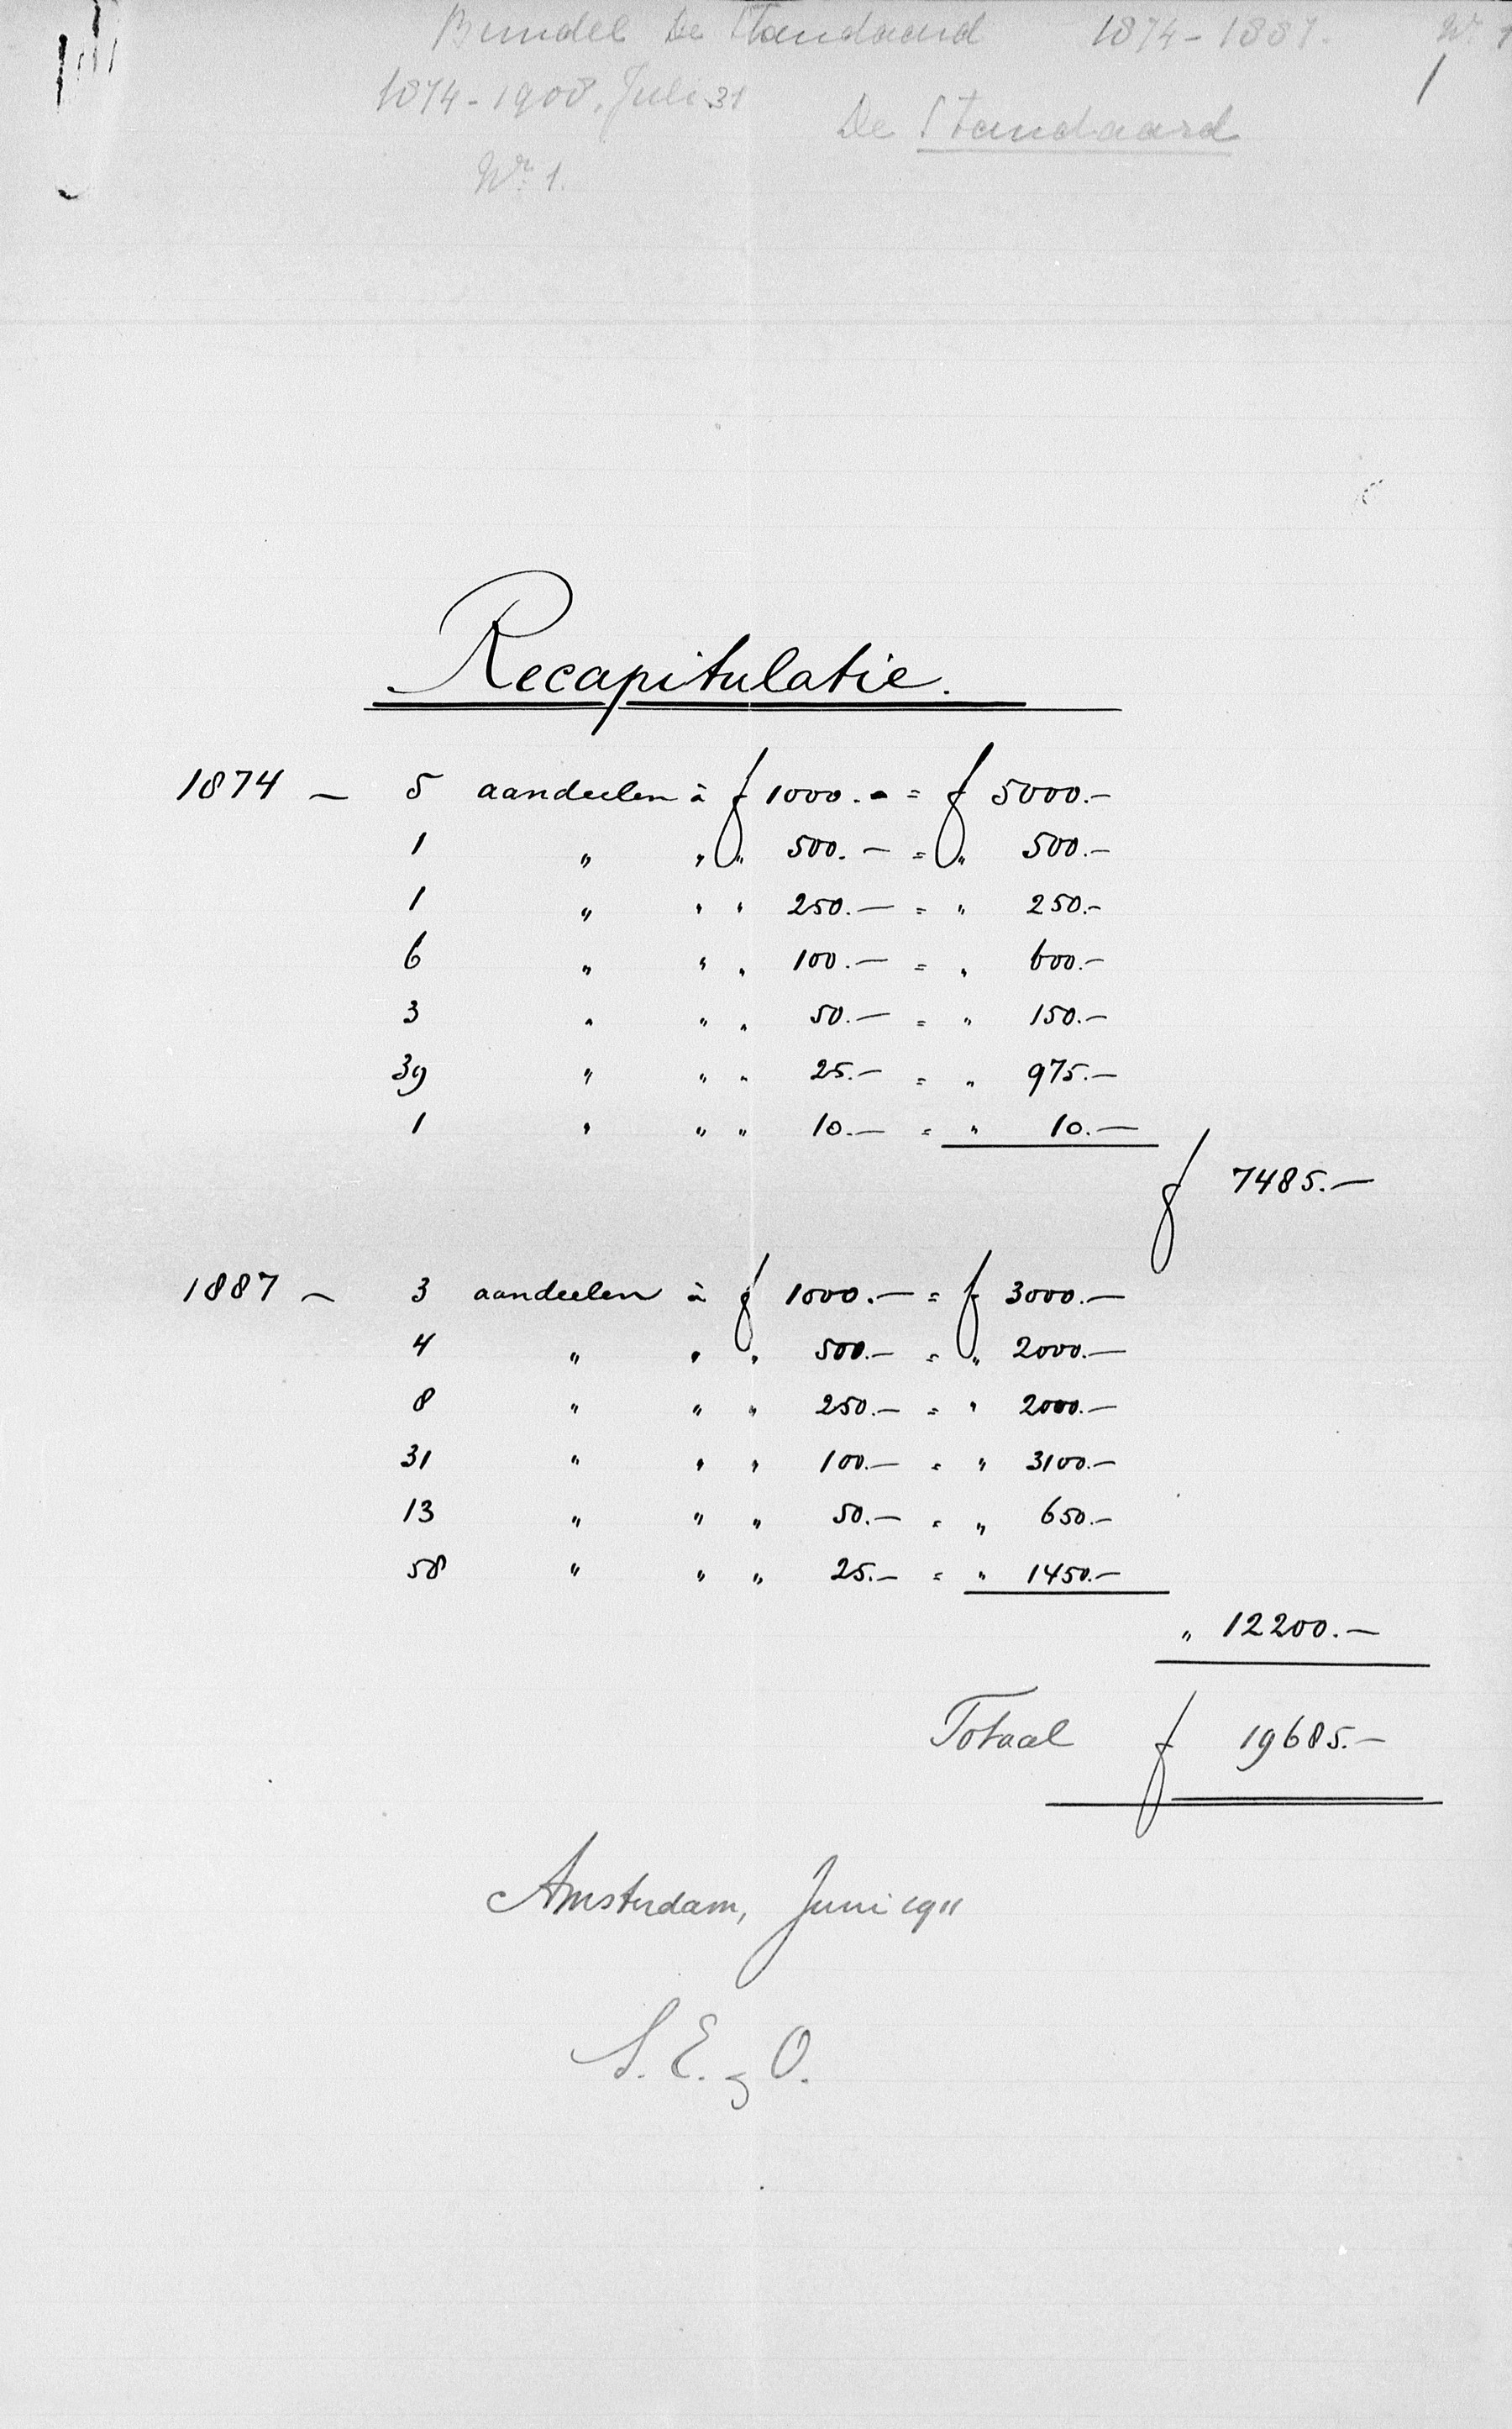 Bundel De Standaard 1874-1887. Nr 1
1874-1908. Juli 31
De Standaard
Nr. 1.
Recapitulatie.
1874 — 5 aandeelen à f 1000.- = f 5000.-
1 " " " 500.- = " 500.-
1 " " " 250.- = " 250.-
6 " " " 100.- = " 600.-
3 " " " 50.- = " 150.-
39 " " " 25.- = " 975.-
1 " " " 10.- = " 10.-
f 7485.-
1887 — 3 aandeelen à f 1000.- = f 3000.-
4 " " " 500.- = " 2000.-
8 " " " 250.- = " 2000.-
31 " " " 100.- = " 3100.-
13 " " " 50.- = " 650.-
58 " " " 25.- = " 1450.-
" 12200.-
Totaal f 19685.-
Amsterdam, Juni 1911
S. E. & O.